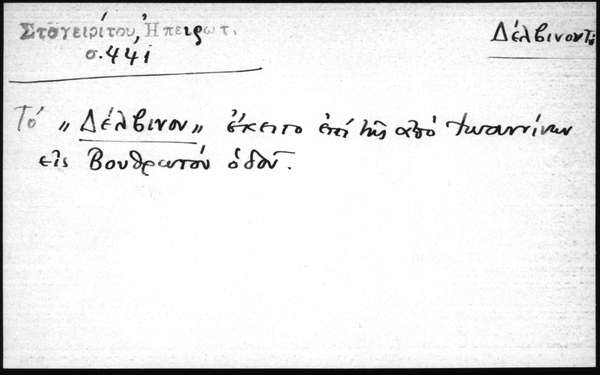 Σταγειρίτου, Ἠπειρωτ.
σ. 441
Δέλβινον τό
Τό „Δέλβινον„ ἔκειτο ἐπί τῆς ἀπό Ἰωαννίνων
εἰς Βουθρωτόν ὁδοῦ.